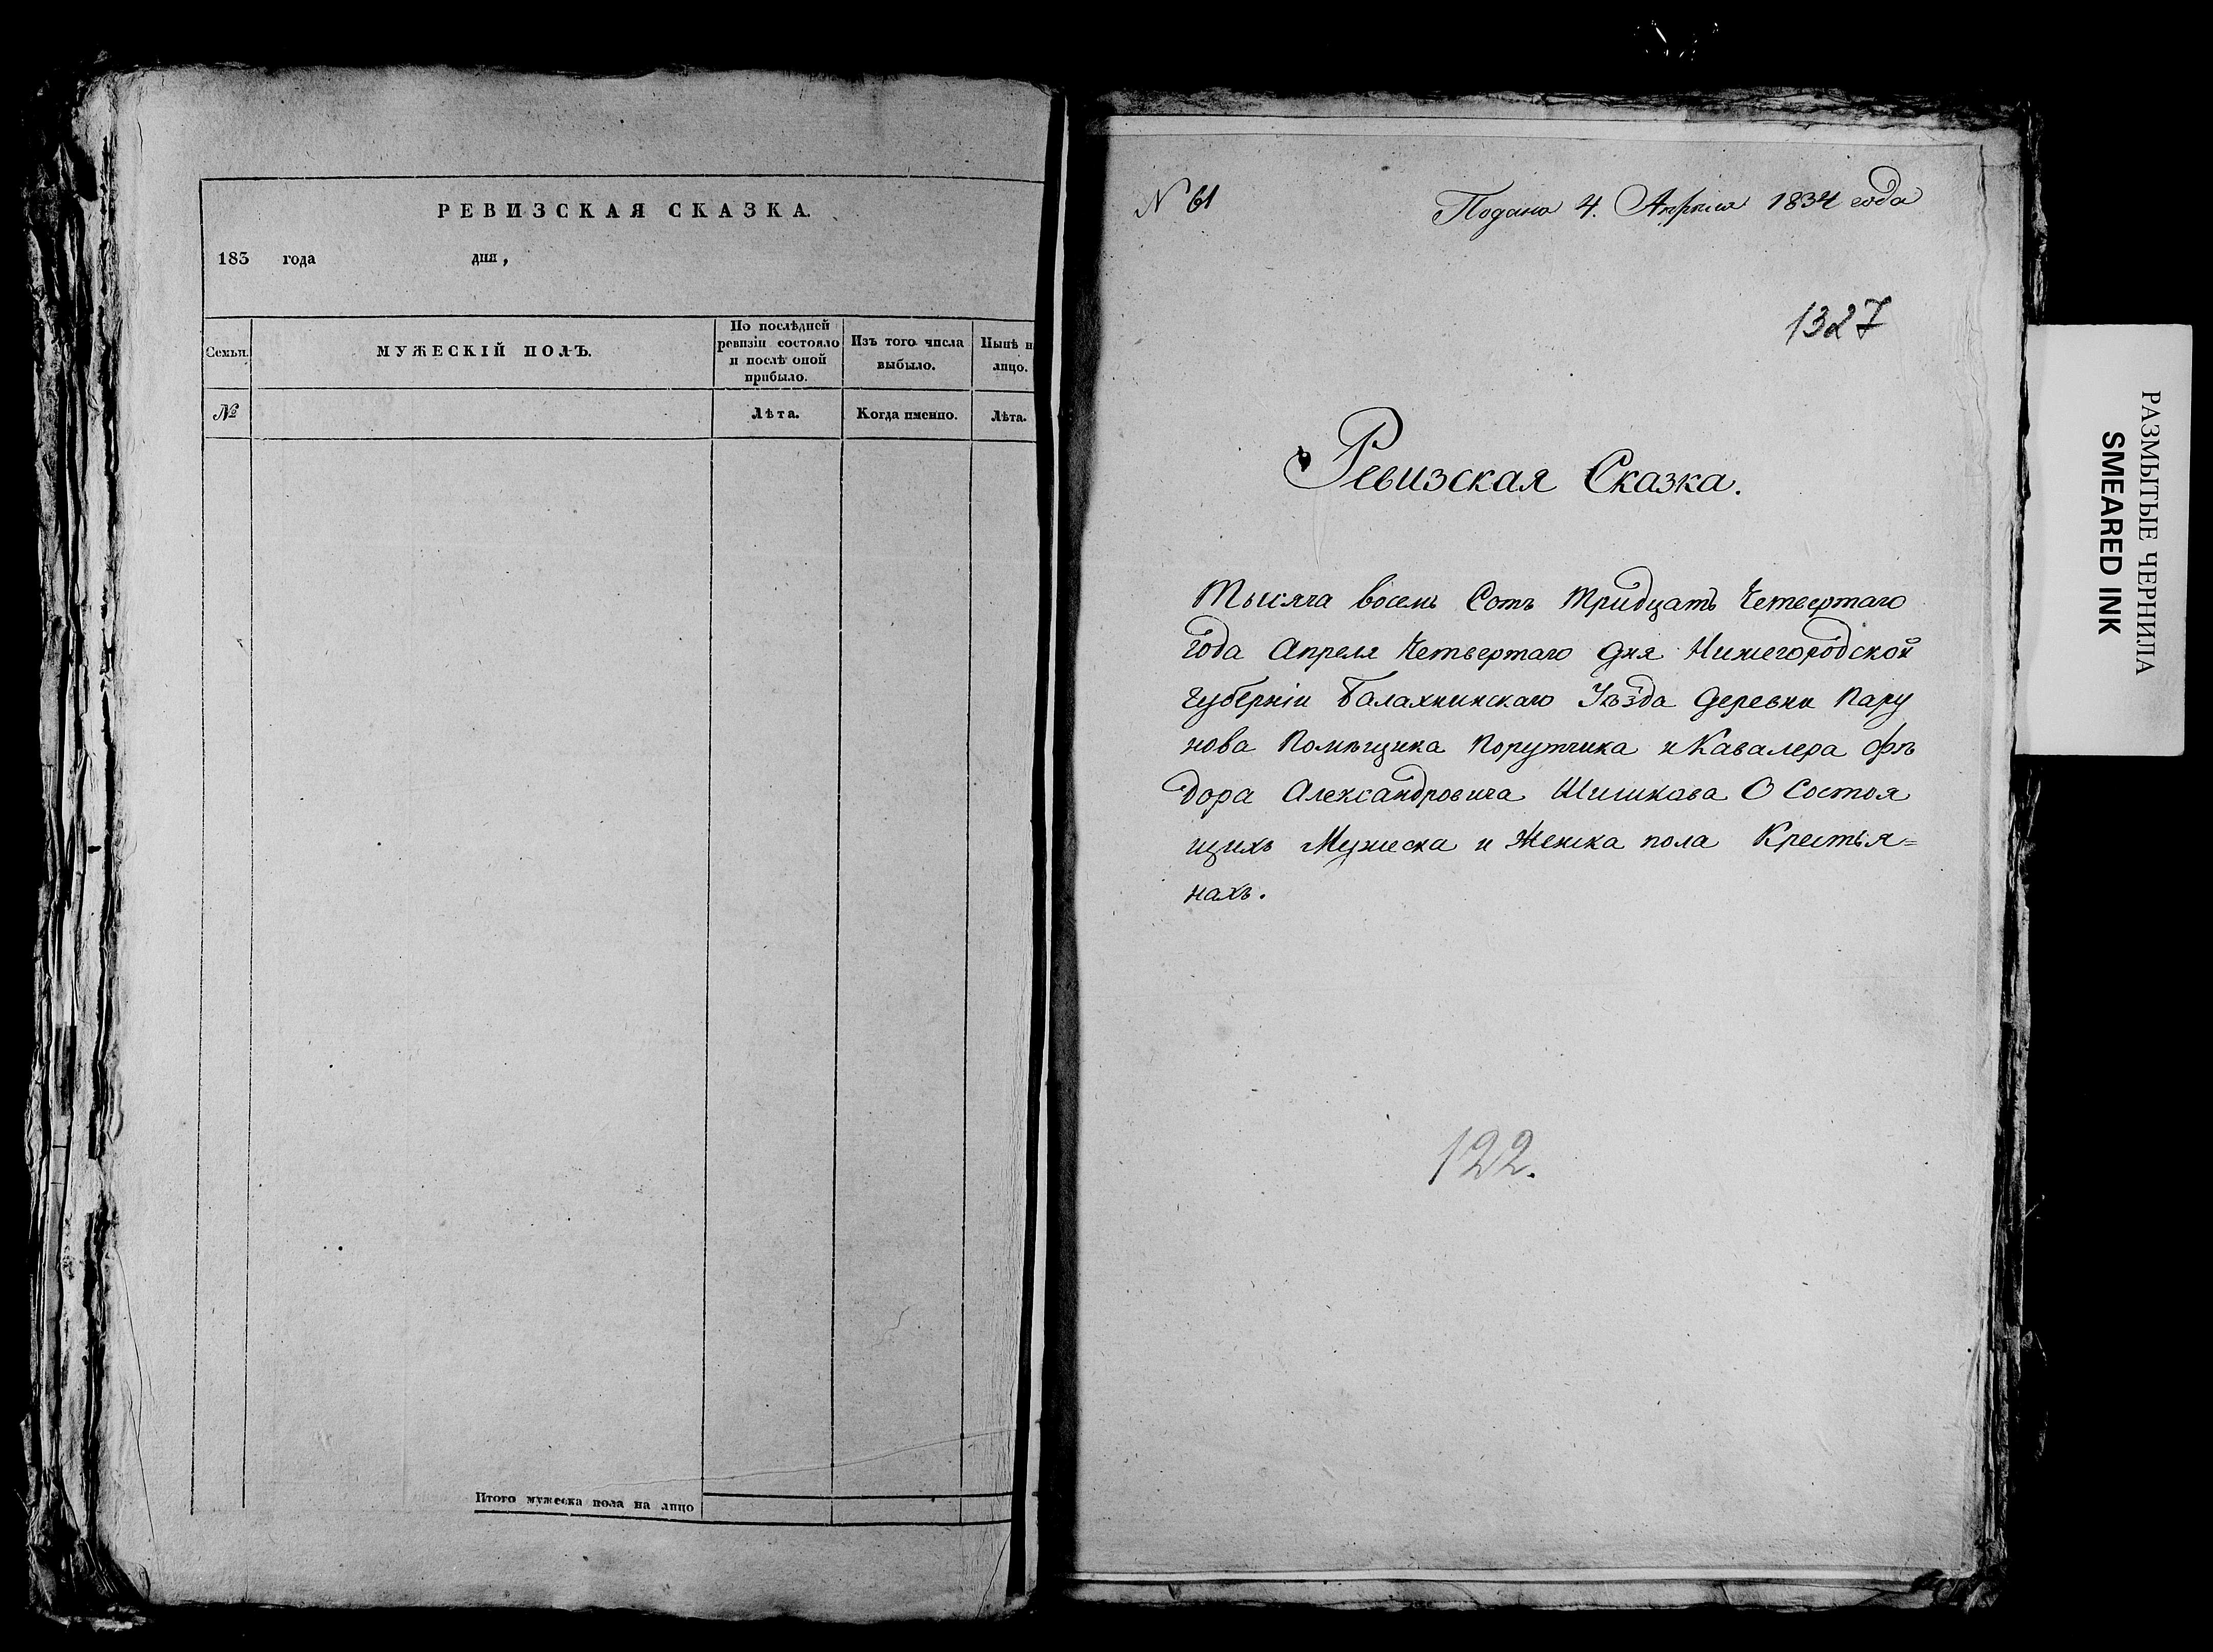 РЕВИЗСКАЯ СКАЗКА.
183 года дня,
Семьи. МУЖЕСКІЙ ПОЛЪ. По послѣдней ревизіи состояло и послѣ оной прибыло. Изъ того числа выбыло. Нынѣ н лицо.
№ Лѣта. Когда именно. Лѣта.
Итого мужеска пола на лицо
N 61
Подана 4. Апреля 1834 года
1327
Ревизская Сказка.
Тысяча восемь Сотъ Тридцать Четвертаго
года Апреля Четвертаго дня Нижегородской
губерніи Балахнинскаго Уѣзда деревни Пару
нова Помѣщика Порутчика и Кавалера Фѣ
дора Александровича Шишкова О Состоя
щихъ Мужеска и Женска пола Крестья=
нахъ.
122.
РАЗМЫТЫЕ ЧЕРНИЛА
SMEARED INK